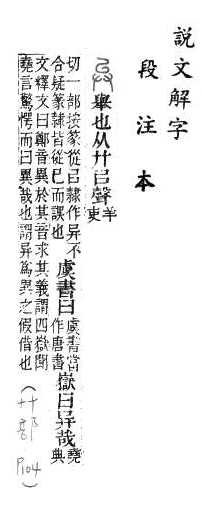 說文解字
段注本
舉也从廾㠯聲羊吏
切一部按篆从㠯隸作异不
合疑篆隸皆从已而誤也
虞書曰
虞書當
作唐書
嶽曰异哉
堯
典
文釋文曰鄭音異於其音求其義謂四嶽聞
堯言驚愕而曰異哉也謂异爲異之假借也
(廾部 P104)